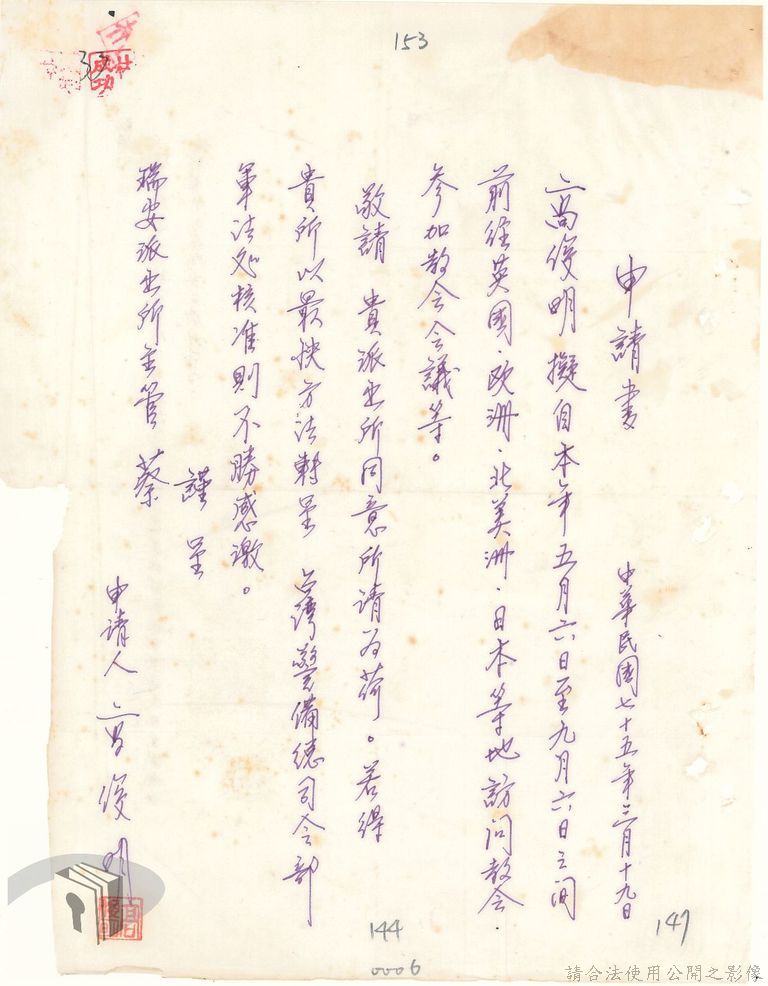 153
33
成功
申請書
中華民國七十五年三月十九日
高俊明擬自本年五月六日至九月六日之间
前往英國、欧洲、北美洲、日本等地訪问教会
参加教会会議等。
敬請 貴派出所同意所请为荷。若得
貴所以最快方法轉呈 台湾警備總司令部
軍法处核准則不勝感激。
謹呈
瑞安派出所主管 蔡
申请人 高俊明
147
144
0006
請合法使用公開之影像